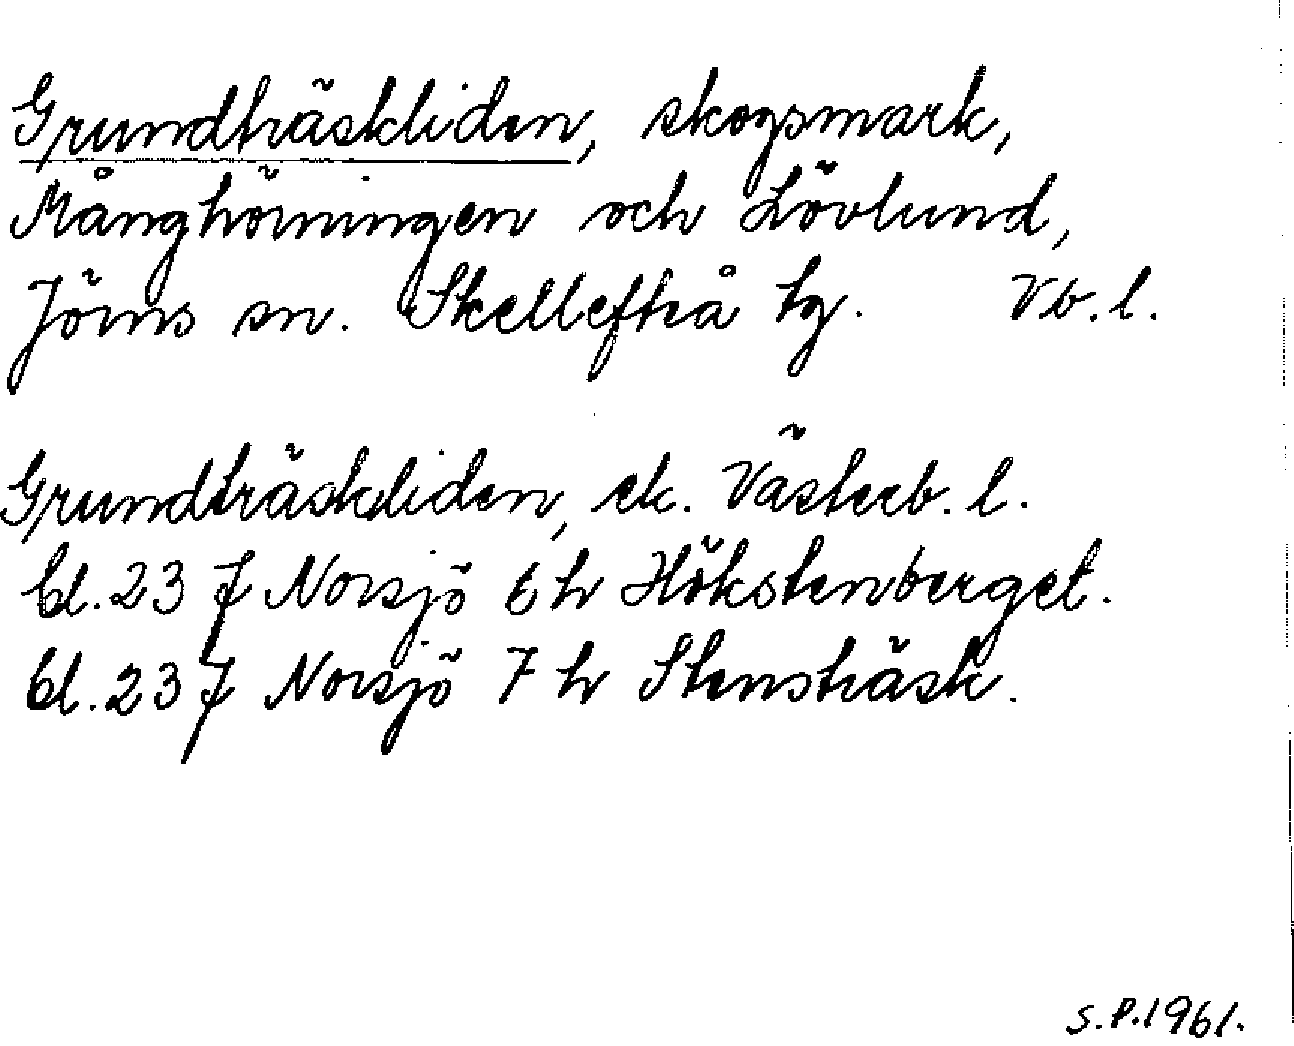 Grundträskliden, skogsmark,
Månghörningen och Lövlund,
Jörns sn. Skellefteå tg. Vb.l.
Grundträskliden, ek. Västerb. l.
bl. 23 J Norsjö 6 h Hökstenberget.
bl. 23 J Norsjö 7 h Stensträsk.
S.P.1961.